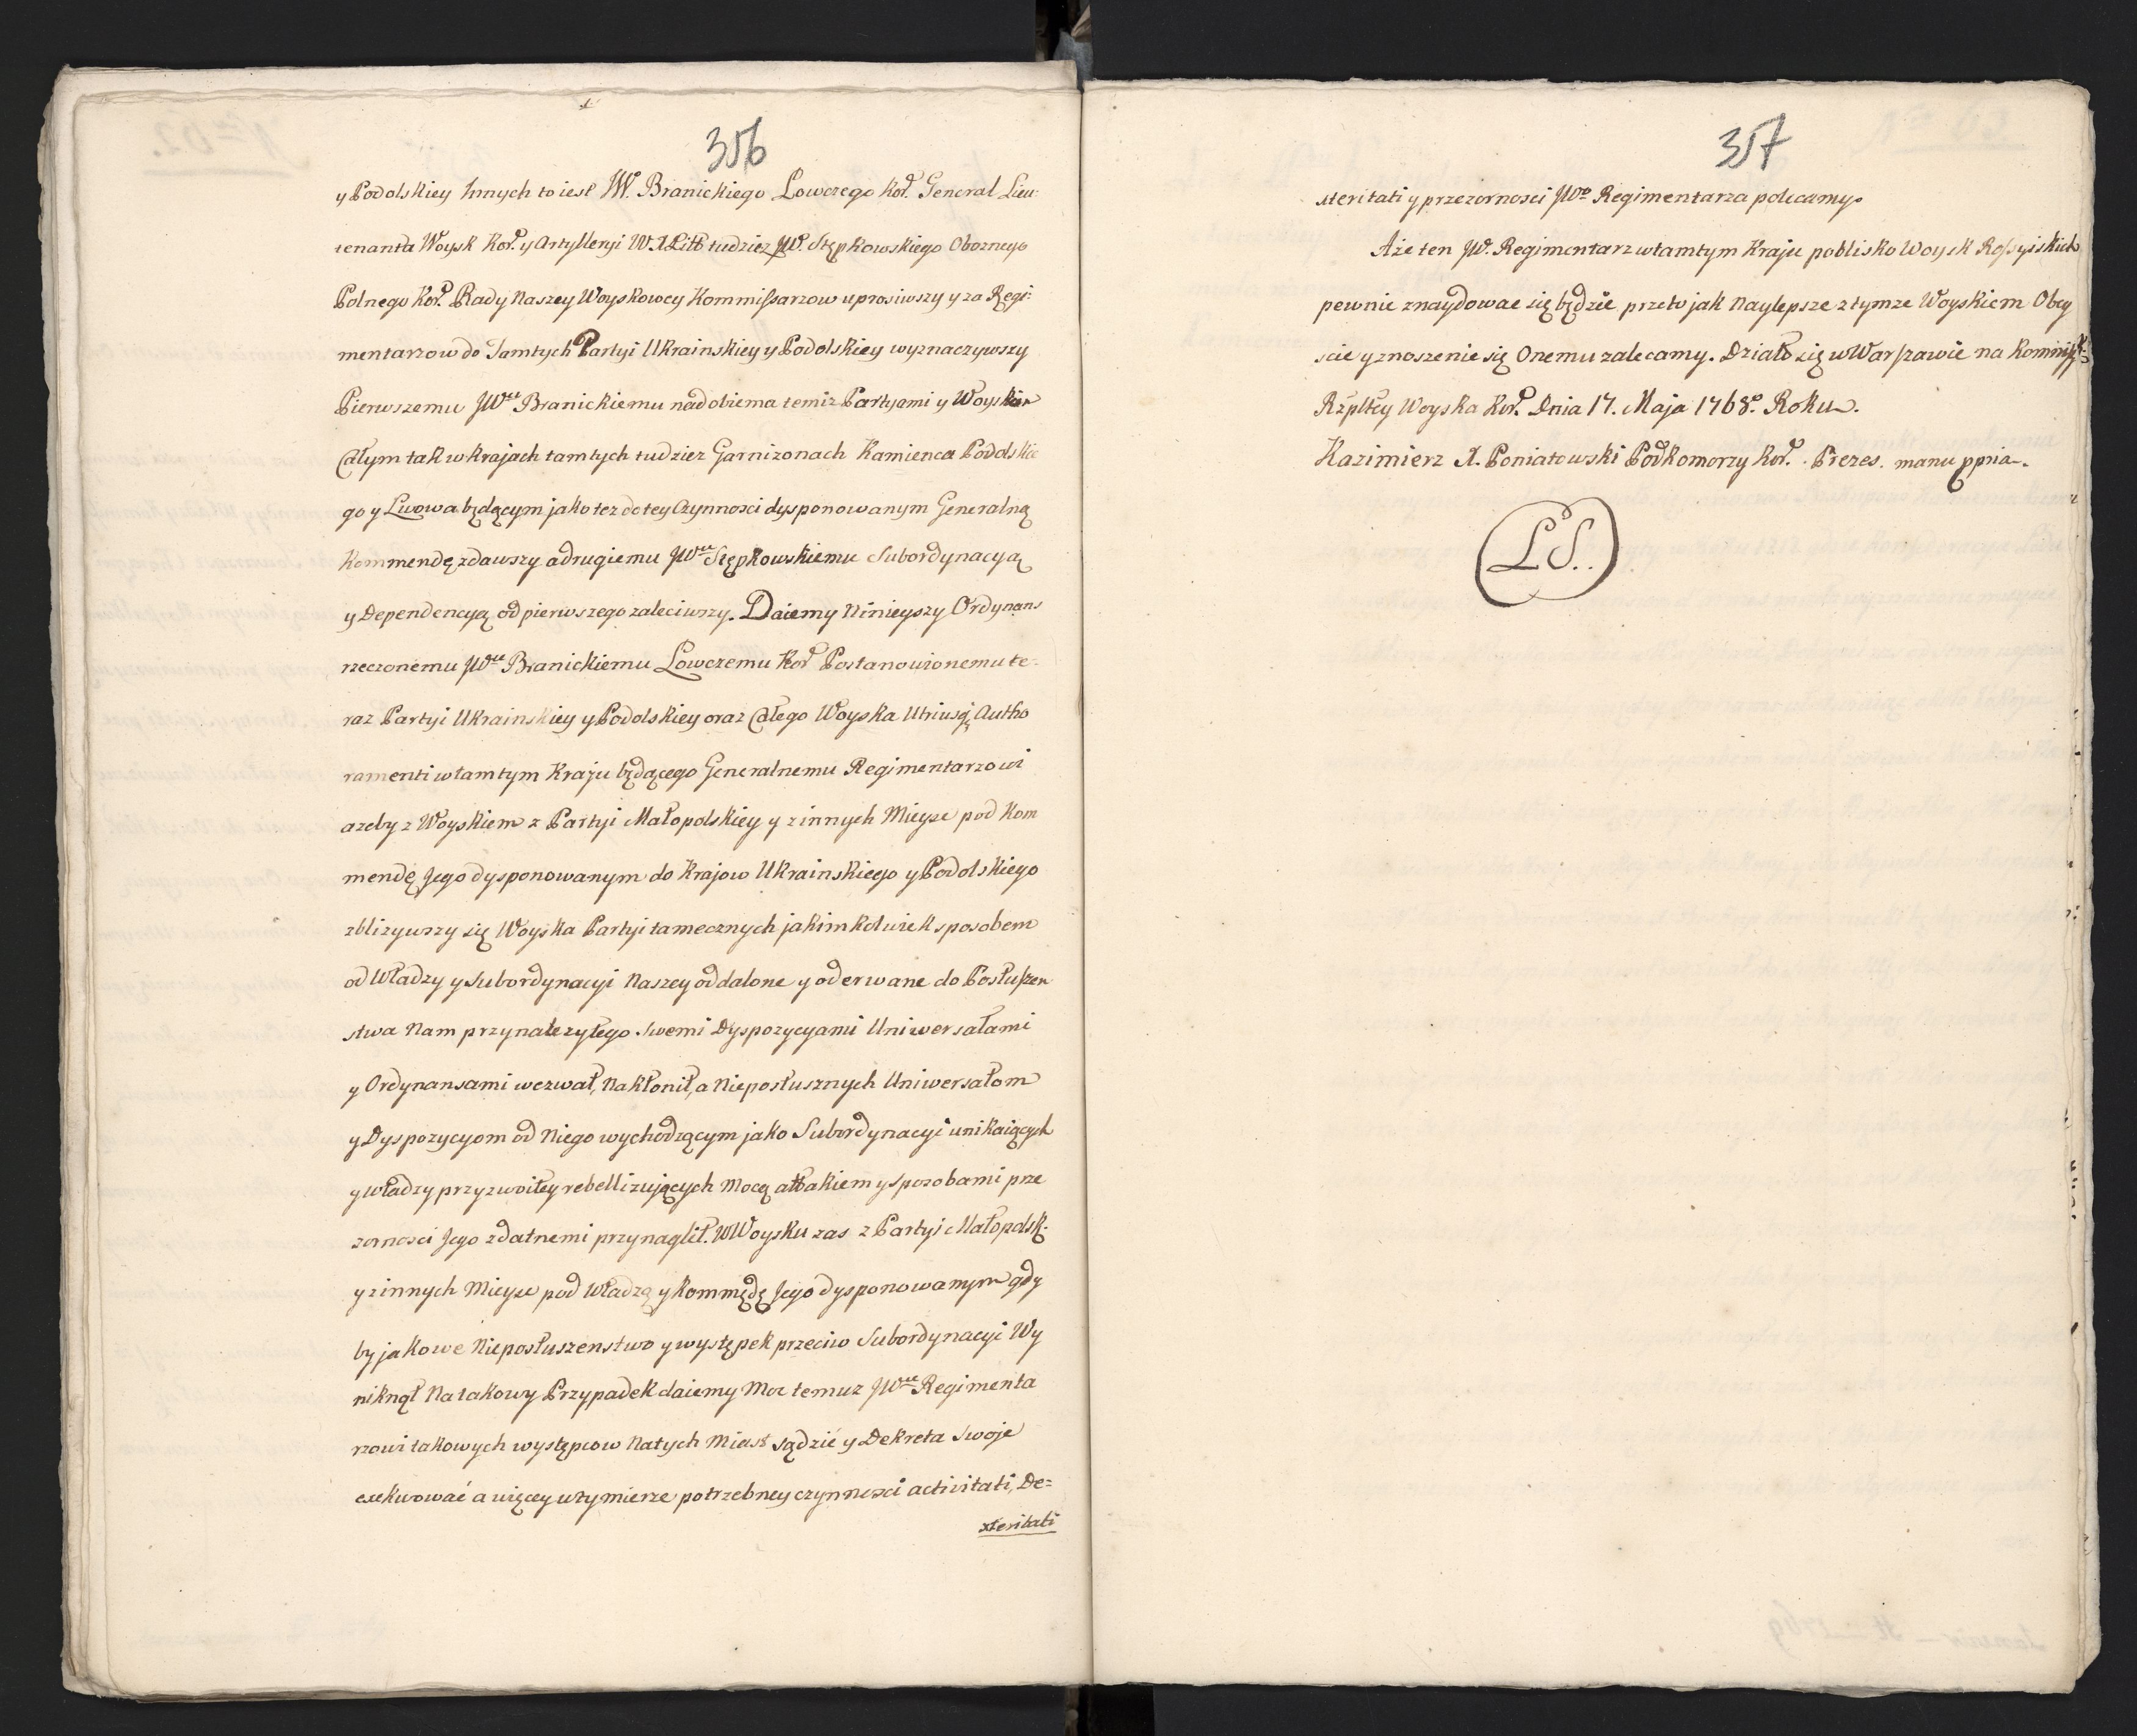 356
y Podolskiey Innych to iest W. Branickiego Łowczego Kor. General Lieu:
tenanta Woysk Kor. y Artylleryi W. X Litt tudziez JW. Stępkowskiego Oboznego
Polnego Kor. Rady Naszey Woyskowey Kommissarzow uprosiwszy y za Regi:
mentarzow do Tamtych Partyi Ukrainskiey y Podolskiey wyznaczywszy
Pierwszemu JWu Branickiemu nad obiema temiz Partyami y Woyskiem
Całym tak w krajach tamtych tudziez Garnizonach Kamienca Podolskie
go y Lwowa będącym jako tez do tey Czynnosci dysponowanym Generalną
Kommendę zdawszy a drugiemu JWu Stępkowskiemu Subordynacyą
y Dependencyą od pierwszego zaleciwszy. Daiemy Ninieyszy Ordynans
rzeczonemu JWu Branickiemu Łowczemu Kor Postanowionemu te-
raz Partyi Ukrainskiey y Podolskiey oraz Całego Woyska Utriusq Autho
ramenti w tamtym Kraju będącego Generalnemu Regimentarzowi
azeby z Woyskiem z Partyi Małopolskiey y z innych Mieysc pod Kom
mendę Jego dysponowanym do Krajow Ukrainskiego y Podolskiego
zblizywszy się Woyska Partyi tamecznych jakimkolwiek sposobem
od Władzy y Subordynacyi Naszey oddalone y oderwane do Posłuszen
stwa Nam przynalezytego Swemi Dyspozycyami Uniwersałami
y Ordynansami wezwał, Nakłonił, a Nieposłusznych Uniwersałom
y Dyspozycyom od Niego wychodzącym jako Subordynacyi unikaiących
y władzy przyzwoitey rebellizujących Mocą attakiem y sposobami prze
zornosci Jego zdatnemi przynaglił. W Woysku zas z Partyi Małopolsk:
y z innych Mieysc pod Władzą y kommędę Jego dysponowanym gdy
by jakowe Nieposłuszenstwo y występek przeciw Subordynacyi Wy
niknął Na takowy Przypadek daiemy Moc temuz JWu Regimenta
rzowi takowych występcow Natych Miast sądzić y Dekreta Swoje
exekwować a więcey w tymierze potrzebney czynnosci activitati, De=
xteritati
357
xteritati y przezornosci JWo Regimentarza polecamy.
A że ten JW. Regimentarz w tamtym Kraju poblisko Woysk Rossyiskich
pewnie znaydowac się będzie przeto jak Naylepsze z tymze Woyskiem Obey
scie y znoszenie się Onemu zalecamy. Działo się w Warszawie na Kommiss
Rzpltey Woyska Kor. Dnia 17. Maja 1768o. Roku.
Kazimierz X. Poniatowski Podkomorzy Kor. Prezes. manu ppria.
LS.